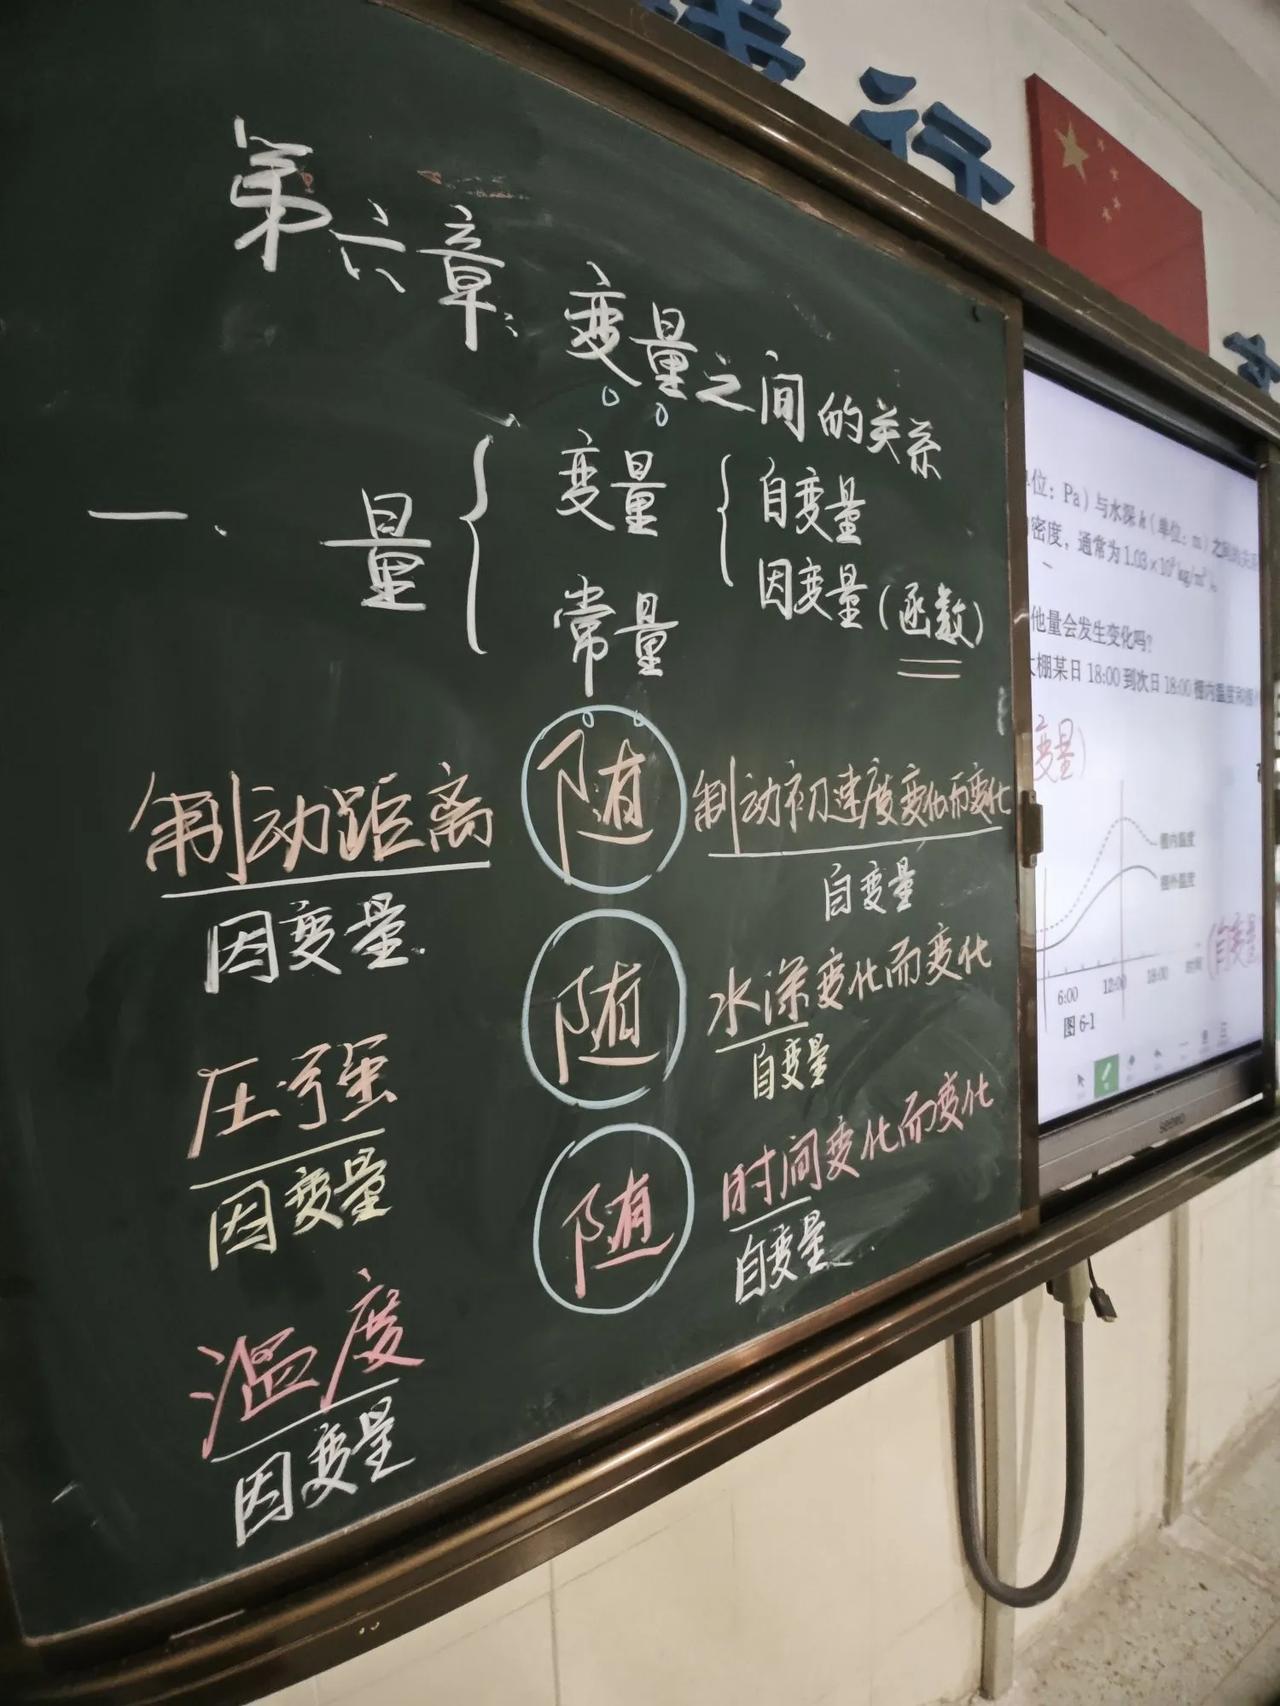 行
第六章: 变量之间的关系
一、 量 { 变量 { 自变量
因变量 (函数)
常量
制动距离 随 制动初速度变化而变化
因变量. 自变量
压强 随 水深变化而变化
因变量 自变量
温度 随 时间变化而变化
因变量 自变量
位: Pa) 与水深 h (单位: m) 之间的关系
密度, 通常为 1.03×10³ kg/m³).
他量会发生变化吗?
大棚某日 18:00 到次日 18:00 棚内温度和棚
变量)
棚内温度
棚外温度
(自变量
6:00 12:00 18:00 时间
图 6-1
seewo